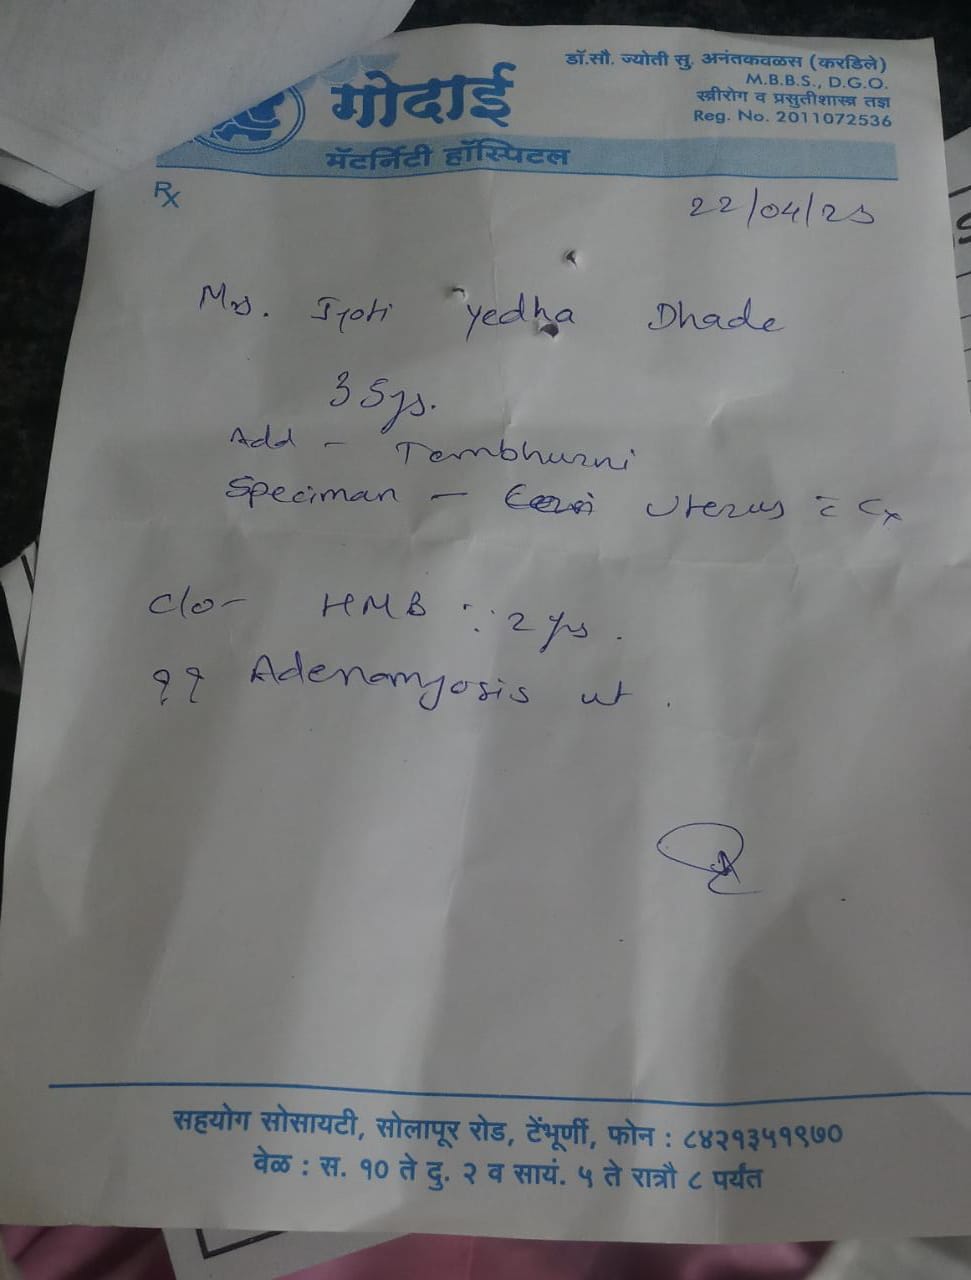 गोदाई
मॅटर्निटी हॉस्पिटल
डॉ.सौ. ज्योती सु. अनंतकवळस (करडिले)
M.B.B.S., D.G.O.
स्त्रीरोग व प्रसुतीशास्त्र तज्ञ
Reg. No. 2011072536
Rx
22/04/25
Mrs. Jyoti Yedha Dhade
35ys.
Add - Tembhurni
Speciman - Uterus c̄ Cx
c/o - HMB ∵ 2 ys.
?? Adenomyosis ut.
सहयोग सोसायटी, सोलापूर रोड, टेंभूर्णी, फोन : ८४२१३५१९७०
वेळ : स. १० ते दु. २ व सायं. ५ ते रात्रौ ८ पर्यंत